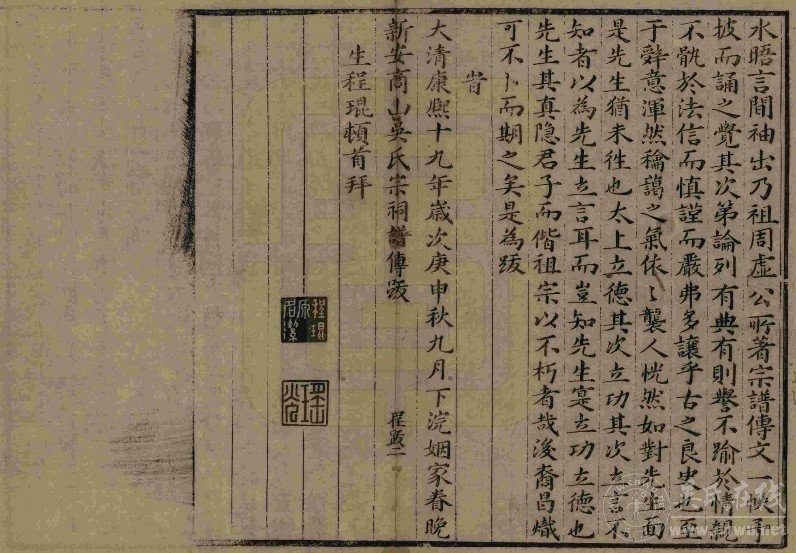 水晤言間袖出乃祖周虛公所著宗譜傳文一帙予
披而誦之覺其次第論列有典有則譽不踰於情親
不骩於法信而慎謹而嚴弗多讓乎古之良史也至
于辭意渾然穐藹之氣依〻襲人恍然如對先生面
是先生猶未徃也太上立德其次立功其次立言不
知者以為先生立言耳而豈知先生寔立功立德也
先生其真隐君子而偕祖宗以不朽者哉後裔昌熾
可不卜而期之矣是為跋
旹
大清康熙十九年歲次庚申秋九月下浣姻家眷晚
生程琨頓首拜
新安商山吳氏宗祠譜傳跋
程跋二
程琨